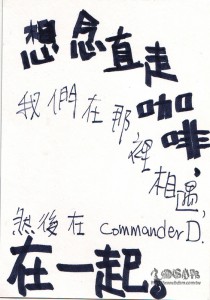 想念直走
我們在那咖啡,
裡相遇,
然後在 commander D.
在一起。